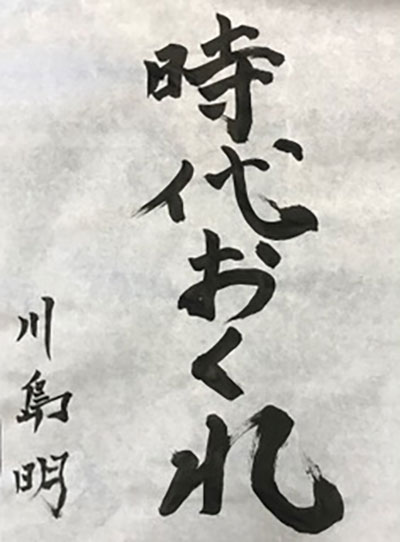 時代おくれ
川島明